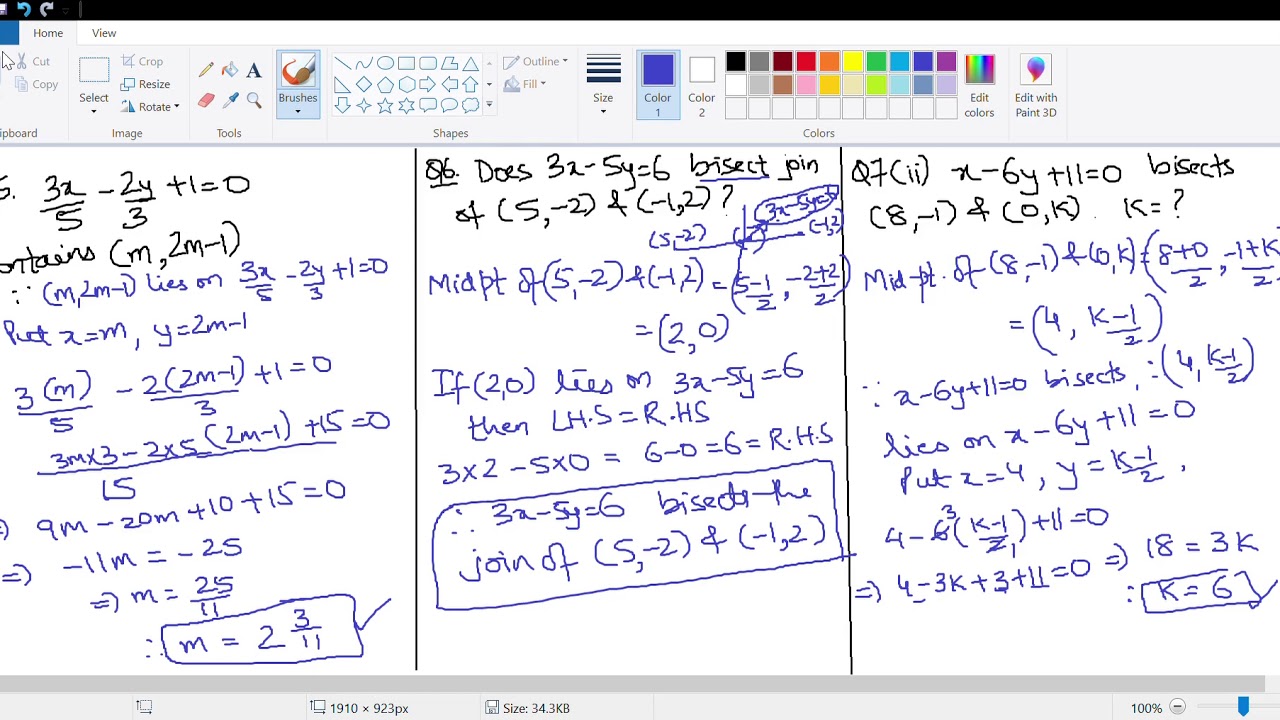 Home View
Cut
Copy
Crop
Resize
Rotate
Select
Brushes
Outline
Fill
Size
Color 1
Color 2
Edit colors
Edit with Paint 3D
ipboard
Image
Tools
Shapes
Colors
5. 3x/5 - 2y/3 + 1 = 0
ontains (m, 2m-1)
∵ (m, 2m-1) lies on 3x/5 - 2y/3 + 1 = 0
Put x = m, y = 2m-1
3(m)/5 - 2(2m-1)/3 + 1 = 0
3m×3 - 2×5(2m-1) + 15 = 0
15
9m - 20m + 10 + 15 = 0
-11m = -25
=> m = 25/11
∴ m = 2 3/11
Q6. Does 3x-5y=6 bisect join
of (5,-2) & (-1,2) ?
3x-5y=6
(5,-2) (-1,2)
Mid pt of (5,-2) & (-1,2) = (5-1/2, -2+2/2)
= (2,0)
If (2,0) lies on 3x-5y=6
then LH.S = R.HS
3×2 - 5×0 = 6-0 = 6 = R.H.S
∴ 3x-5y=6 bisects the
join of (5,-2) & (-1,2)
Q7(ii) x-6y+11=0 bisects
(8,-1) & (0,K). K=?
Mid-pt. of (8,-1) & (0,K) = (8+0/2, -1+K/2
= (4, K-1/2)
∵ x-6y+11=0 bisects, ∴ (4, K-1/2)
lies on x-6y+11=0
Put x=4, y = K-1/2,
4 - 6 3 (K-1/2 1) + 11 = 0
=> 4 - 3K + 3 + 11 = 0
=> 18 = 3K
∴ K = 6
1910 × 923px
Size: 34.3KB
100%